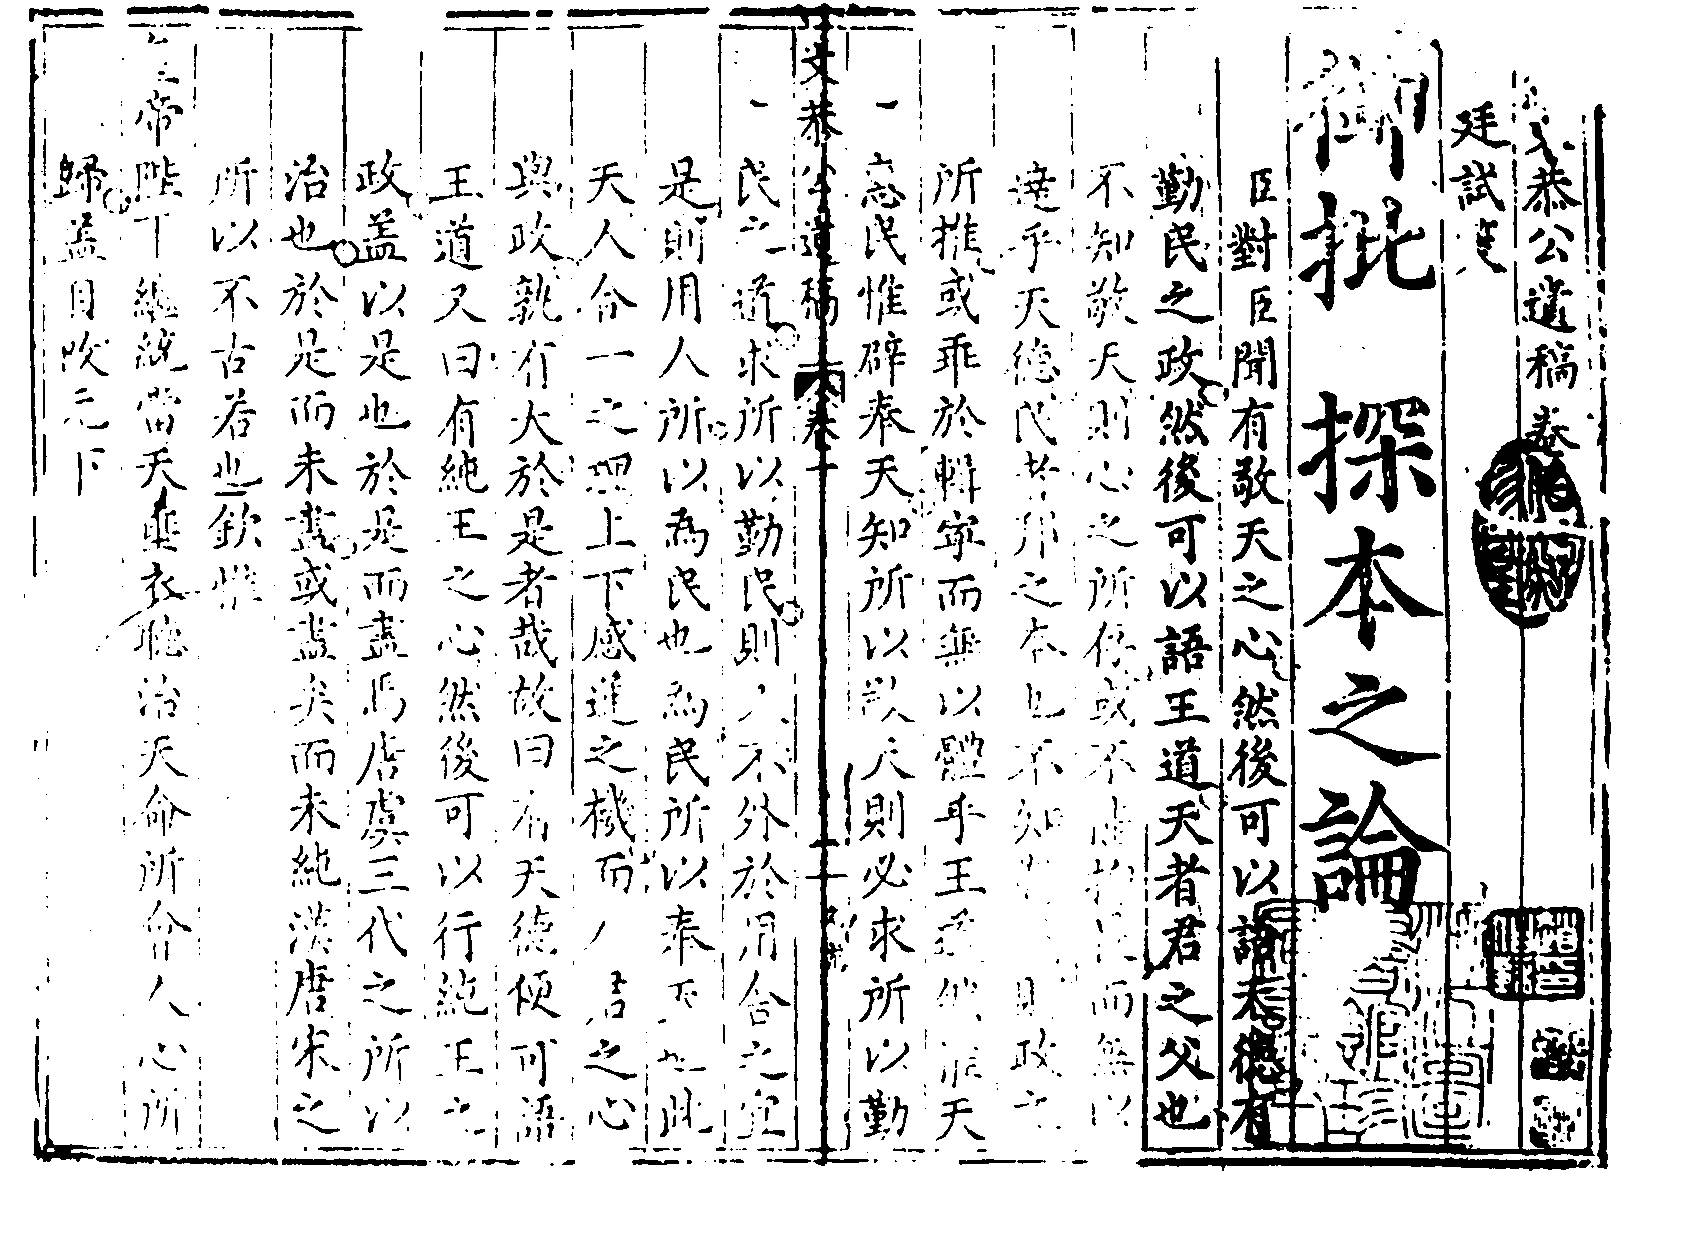 文恭公遺稿卷
廷試策
御批 探本之論
臣對臣聞有敬天之心然後可以語天德有
勤民之政然後可以語王道天者君之父也
不知敬天則心之所存或不 而無以
達乎天德民者邦之本也不知 則政之
所推或乖於輯寧而無以體乎王 天
民惟辟奉天知所以敬天則必求所以勤
文恭公遺稿 卷一 一
民之道求所以勤民則 不外於用舍之宜
是則用人所以為民也為民所以奉天也此
天人合一之理上下感通之機而 君之心
與政孰有大於是者哉故曰有天德便可語
王道又曰有純王之心然後可以行純王之
政蓋以是也於是而盡焉唐虞三代之所以
治也於是而未盡或盡矣而未純漢唐宋之
所以不古若也欽惟
皇帝陛下繼統當天垂衣聽治天命所命人心所
歸蓋自吹元下